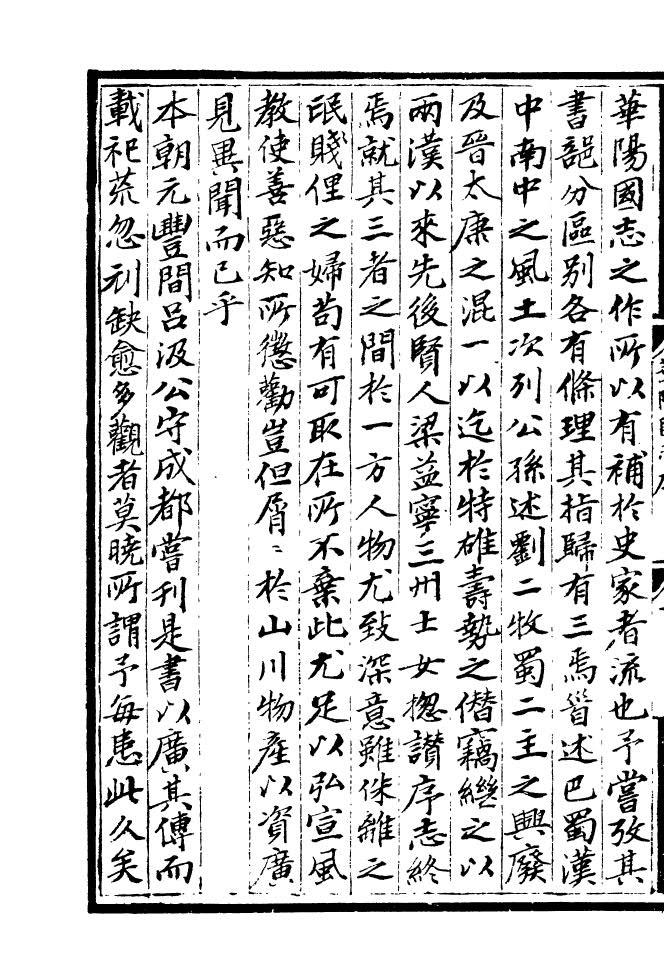 華陽國志之作所以有補於史家者流也予嘗攷其
書部分區別各有條理其指歸有三焉首述巴蜀漢
中南中之風土次列公孫述劉二牧蜀二主之興廢
及晉太康之混一以迄於特雄壽勢之僣竊繼之以
兩漢以來先後賢人梁益寧三州士女揔讃序志終
焉就其三者之間於一方人物尤致深意雖侏離之
氓賤俚之婦苟有可取在所不棄此尤足以弘宣風
教使善惡知所懲勸豈但屑〻於山川物產以資廣
見異聞而已乎
本朝元豐間呂汲公守成都嘗刊是書以廣其傳而
載祀荒忽刓缺愈多觀者莫曉所謂予每患此久矣